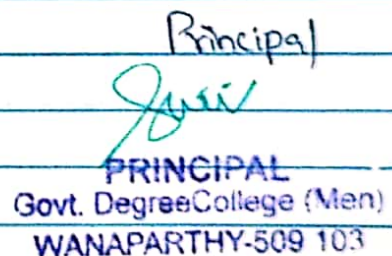 Principal
PRINCIPAL
Govt. DegreeCollege (Men)
WANAPARTHY-509 103